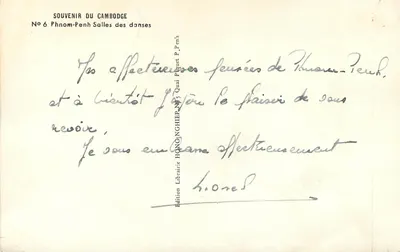 SOUVENIR DU CAMBODGE
No 6 Phnom-Penh Salles des danses
Mes affectueuses pensées de Phnom-Penh,
et à bientôt j'espère le plaisir de vous
revoir.
Je vous embrasse affectueusement
Lionel
Edition Librairie HONG NGHIEP Quai P. Penh